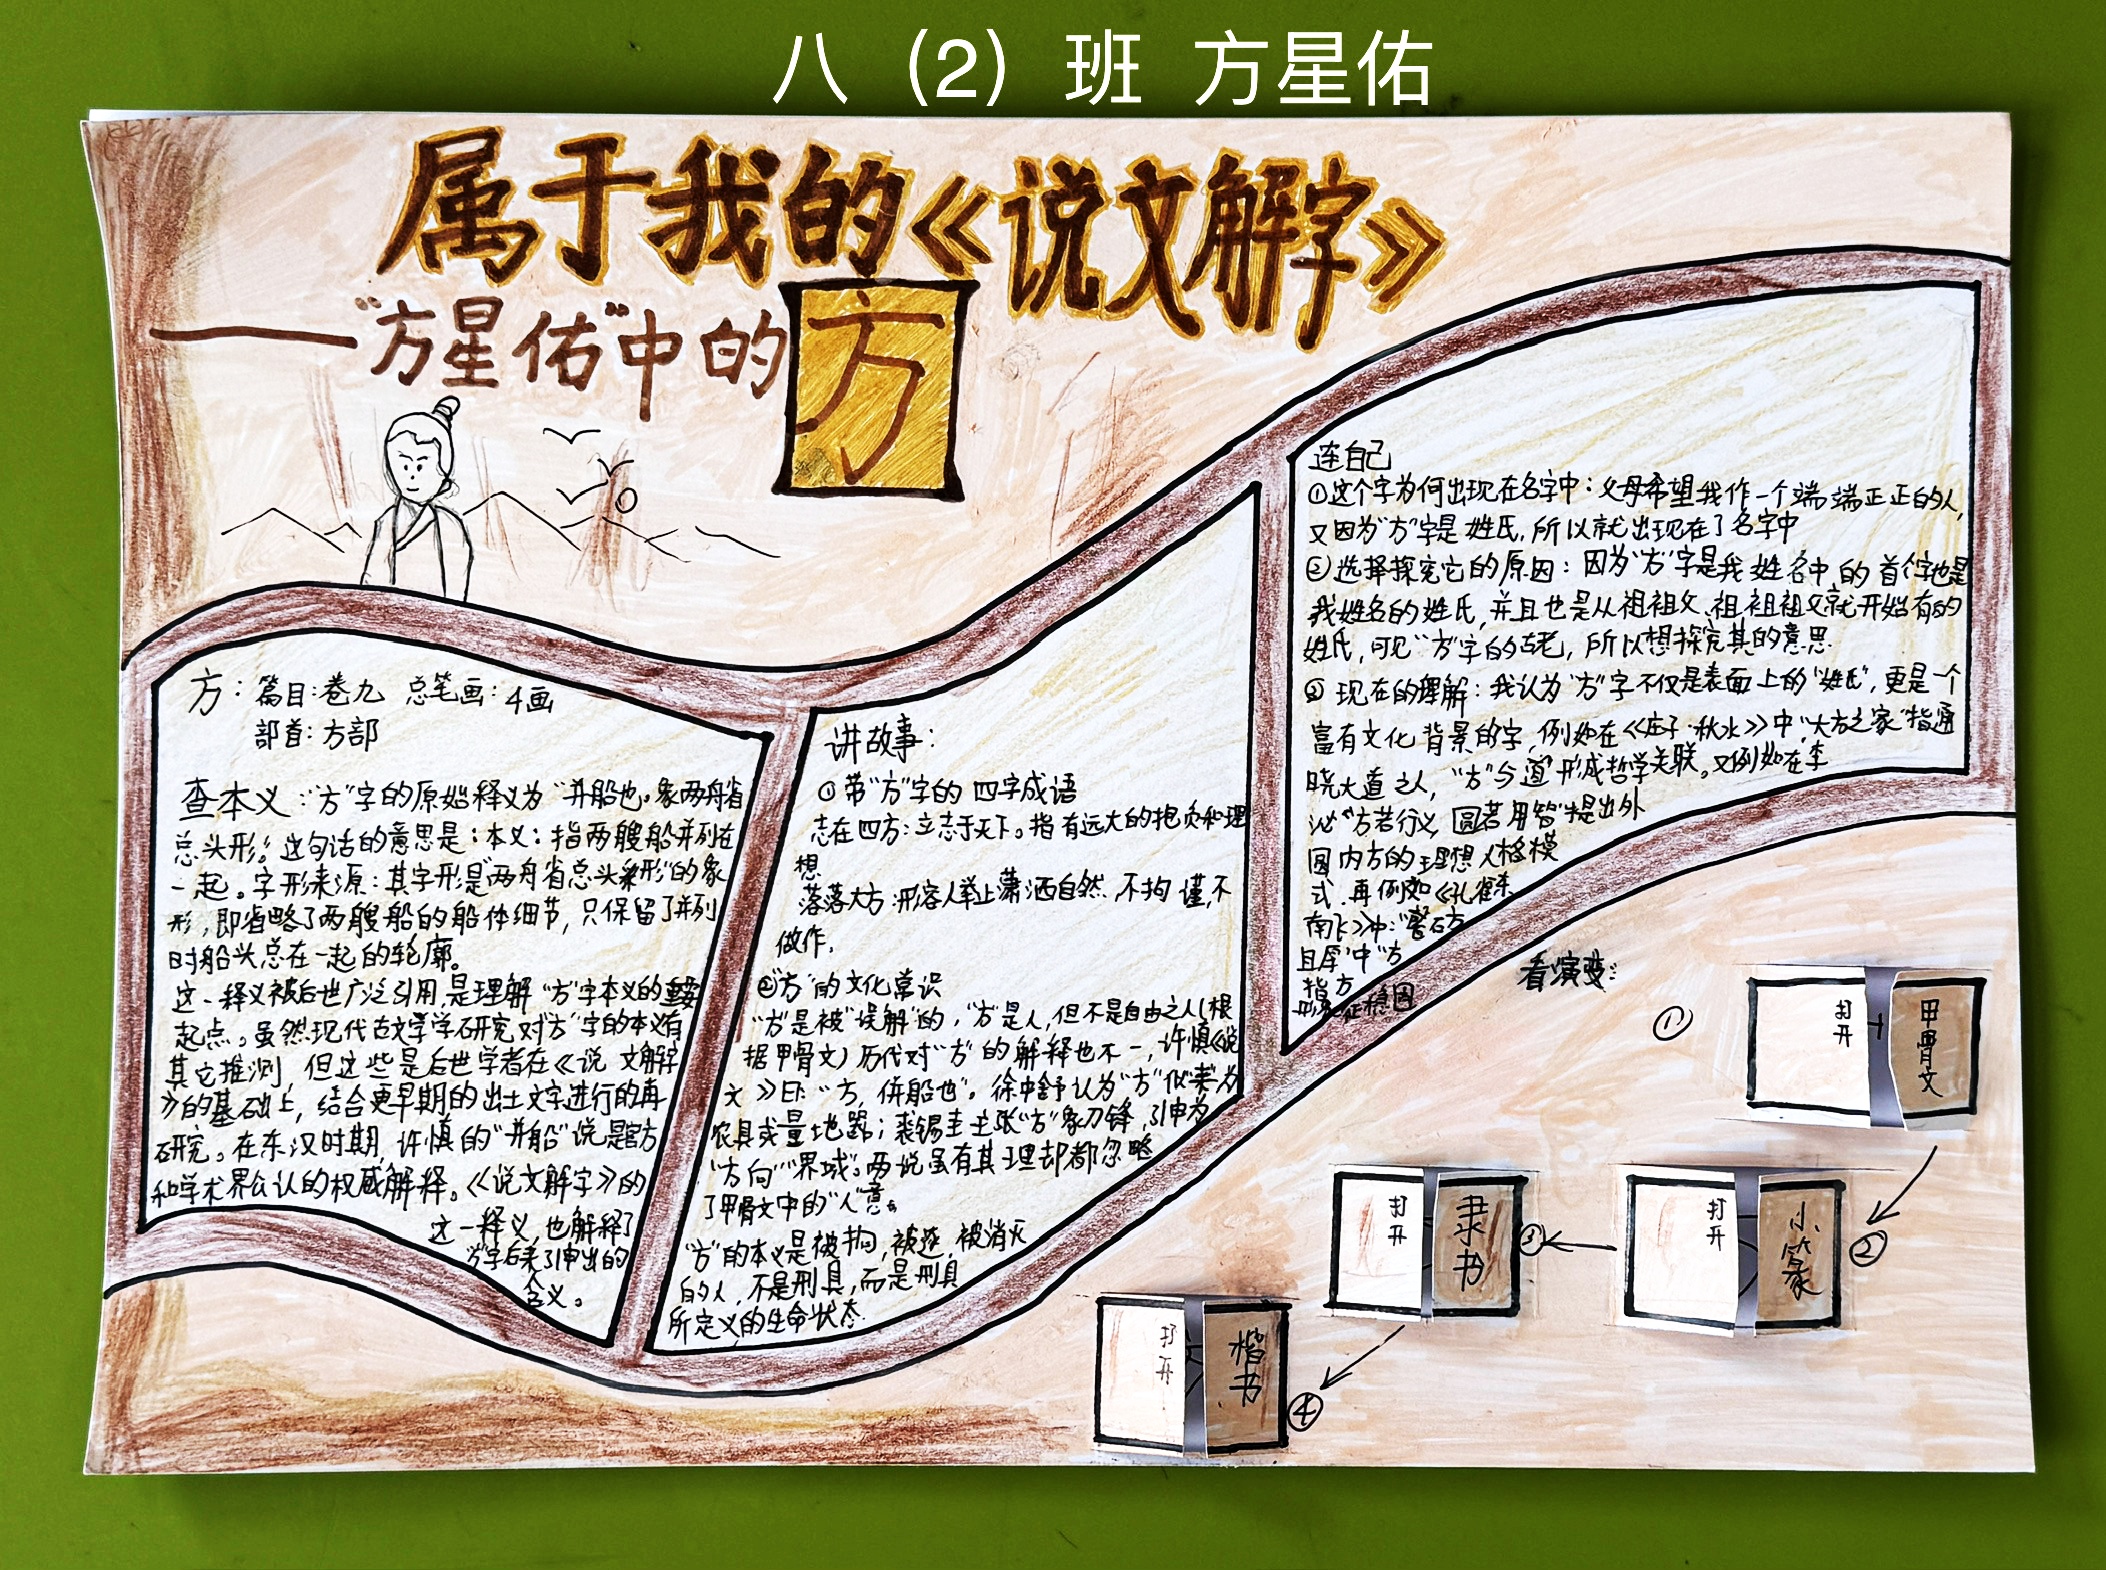 八（2）班 方星佑
属于我的《说文解字》
——“方星佑”中的方
方：篇目：卷九 总笔画：4画
部首：方部
查本义：“方”字的原始释义为“并船也。象两舟省
总头形。”这句话的意思是：本义：指两艘船并列在
一起。字形来源：其字形是“两舟省总头象形”的象
形，即省略了两艘船的船体细节，只保留了并列
时船头总在一起的轮廓。
这一释义被后世广泛引用，是理解“方”字本义的重要
起点。虽然现代古文字学研究对“方”字的本义有
其它推测，但这些是后世学者在《说文解字
》的基础上，结合更早期的出土文字进行的再
研究。在东汉时期，许慎的“并船”说是官方
和学术界公认的权威解释。《说文解字》的
这一释义，也解释了
“方”字后来引申出的
含义。
讲故事：
①带“方”字的四字成语
志在四方：立志于天下。指有远大的抱负和理
想
落落大方：形容人举止潇洒自然，不拘谨，不
做作。
②“方”的文化常识
“方”是被“误解”的，“方”是人，但不是自由之人（根
据甲骨文）历代对“方”的解释也不一，许慎《说
文》曰：“方，併船也”。徐中舒认为“方”似“耒”为
农具或量地器；裘锡圭主张“方”象刀锋，引申为
“方向”“界域”。两说虽有其理却都忽略
了甲骨文中的“人”意。
“方”的本义是被拘，被逐，被消灭
的人，不是刑具，而是刑具
所定义的生命状态.
连自己
①这个字为何出现在名字中：父母希望我作一个端端正正的人，
又因为“方”字是姓氏，所以就出现在了名字中
②选择探究它的原因：因为“方”字是我姓名中的首个字也是
我姓名的姓氏，并且也是从祖祖父、祖祖祖父就开始有的
姓氏，可见“方”字的古老，所以想探究其的意思.
③现在的理解：我认为“方”字不仅是表面上的“姓氏”，更是一个
富有文化背景的字，例如在《庄子·秋水》中，“大方之家”指通
晓大道之人，“方”与“道”形成哲学关联。又例如在李
泌“方若行义，圆若用智”提出外
圆内方的理想人格模
式，再例如《孔雀东
南飞》中：“磐石方
且厚”中“方”
指方
形象征稳固
看演变：
① 打开 甲骨文
② 打开 小篆
③ 打开 隶书
④ 打开 楷书